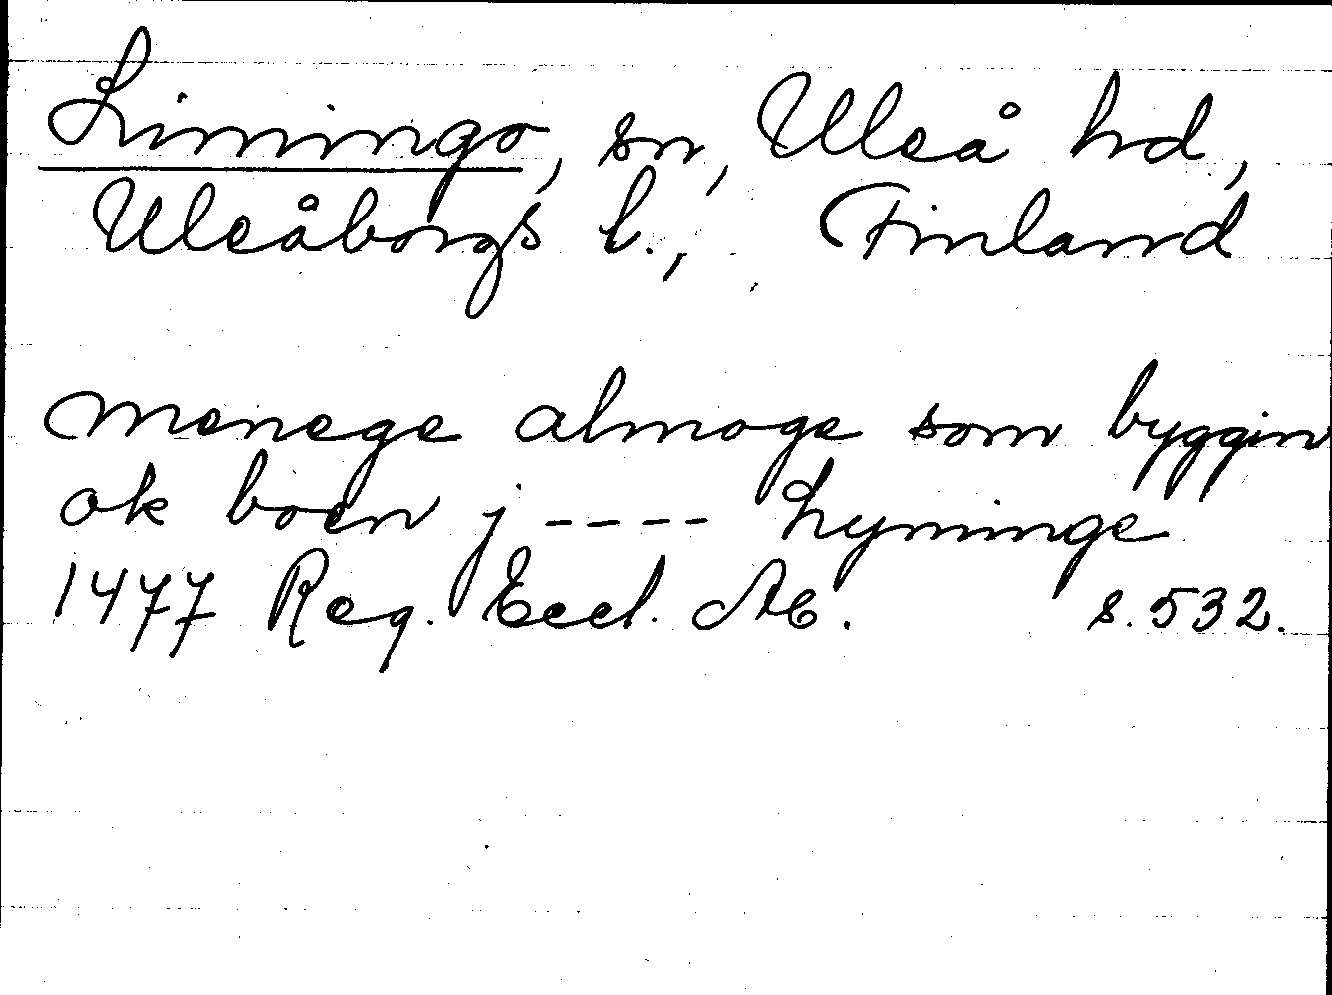 Limingo, sn, Uleå hd,
Uleåborgs l., Finland
menege almoge som byggin
ok boen j ---- Lyminge
1477 Reg. Eccl. Ab. s. 532.